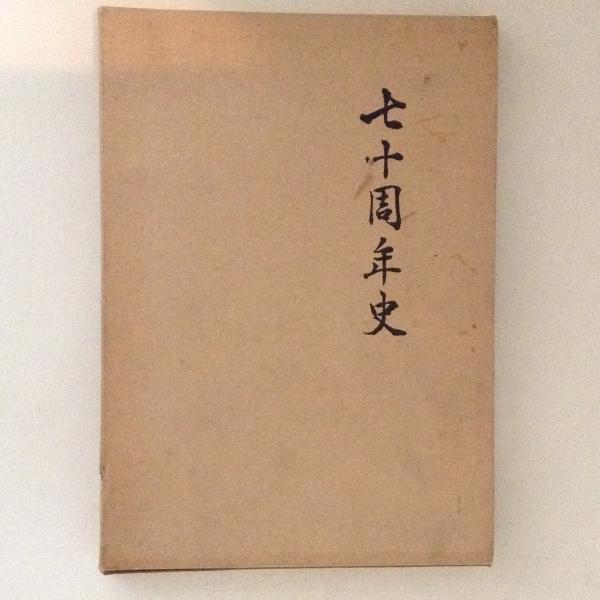 七十周年史